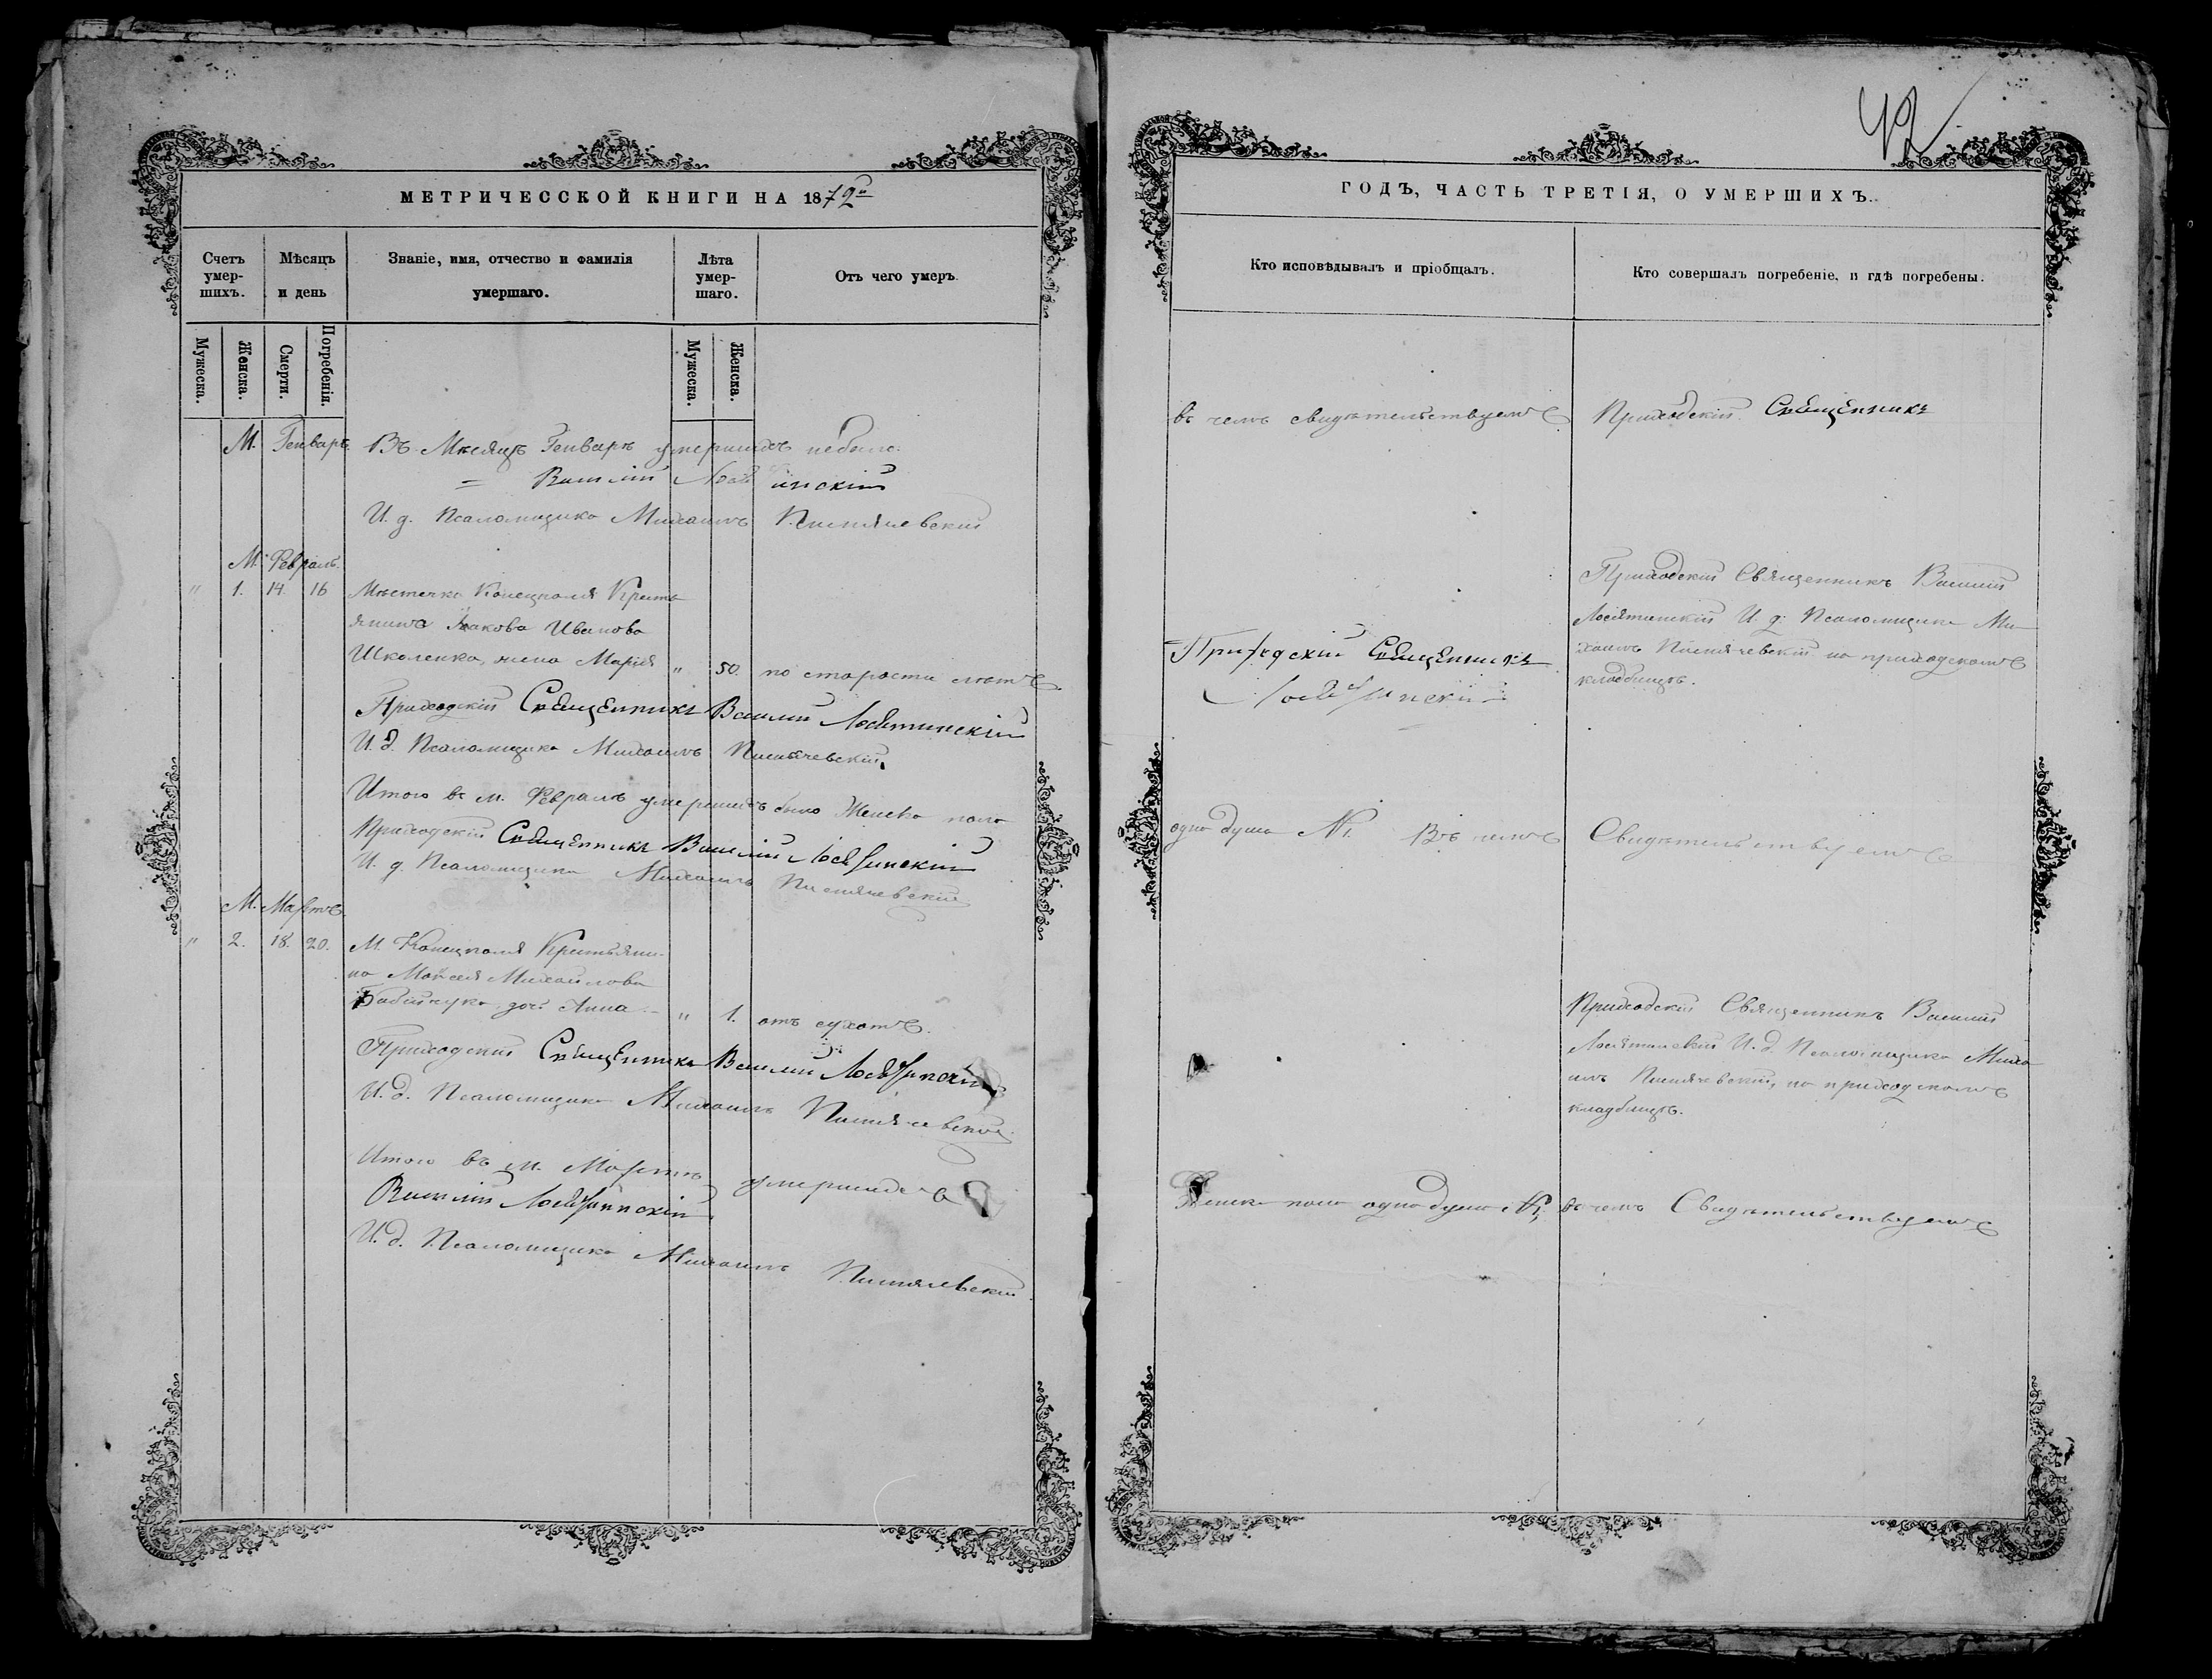 42
МЕТРИЧЕССКОЙ КНИГИ НА 1872й
Счетъ умер-шихъ.
Мѣсяцъ и день
Званіе, имя, отчество и фамилія умершаго.
Лѣта умер-шаго.
Отъ чего умеръ.
Мужеска.
Женска.
Смерти.
Погребенія.
Мужеска.
Женска.
М. Генварь.
Въ Мѣсяцѣ Генварѣ умершихъ небыло.
= Василій
И. д. Псаломщика Михаилъ
М. Февраль.
" 1. 14. 16 Мѣстечка Конецполя Кресть
янина Іакова Иванова
Школенка, жена Марія " 50. по старости лѣтъ
Приходскій Священникъ Василій Лосятинскій
И. д. Псаломщика Михаилъ
Итого въ м. Февралѣ умершихъ было Женска пола
Приходскій Священникъ Василій Лосятинскій
И. д. Псаломщика Михаилъ
М. Мартъ
" 2. 18. 20. М. Конецполя Крестьяни-
на Моѵсея Михайлова
дочь Анна " 1. отъ сухотъ.
Приходскій Священникъ Василій Лосятинскій
И. д. Псаломщика Михаилъ
Итого въ м. Мартѣ умершихъ
Василій Лосятинскій
И. д. Псаломщика Михаилъ
ГОДЪ, ЧАСТЬ ТРЕТІЯ, О УМЕРШИХЪ.
Кто исповѣдывалъ и пріобщалъ.
Кто совершалъ погребеніе, и гдѣ погребены.
въ чемъ свидѣтельствуемъ Приходскій Священникъ
Приходскій Священникъ Василій
Лосятинскій И. д. Псаломщика Ми-
хаилъ на приходскомъ
кладбищѣ.
Приходскій Священникъ
Лосятинскій
одна душа №1. Въ чемъ Свидѣтельствуемъ
Приходскій Священникъ Василій
Лосятинскій И. д. Псаломщика Миха
илъ на приходскомъ
кладбищѣ.
Женска пола одна душа №1, въ чемъ Свидѣтельствуемъ